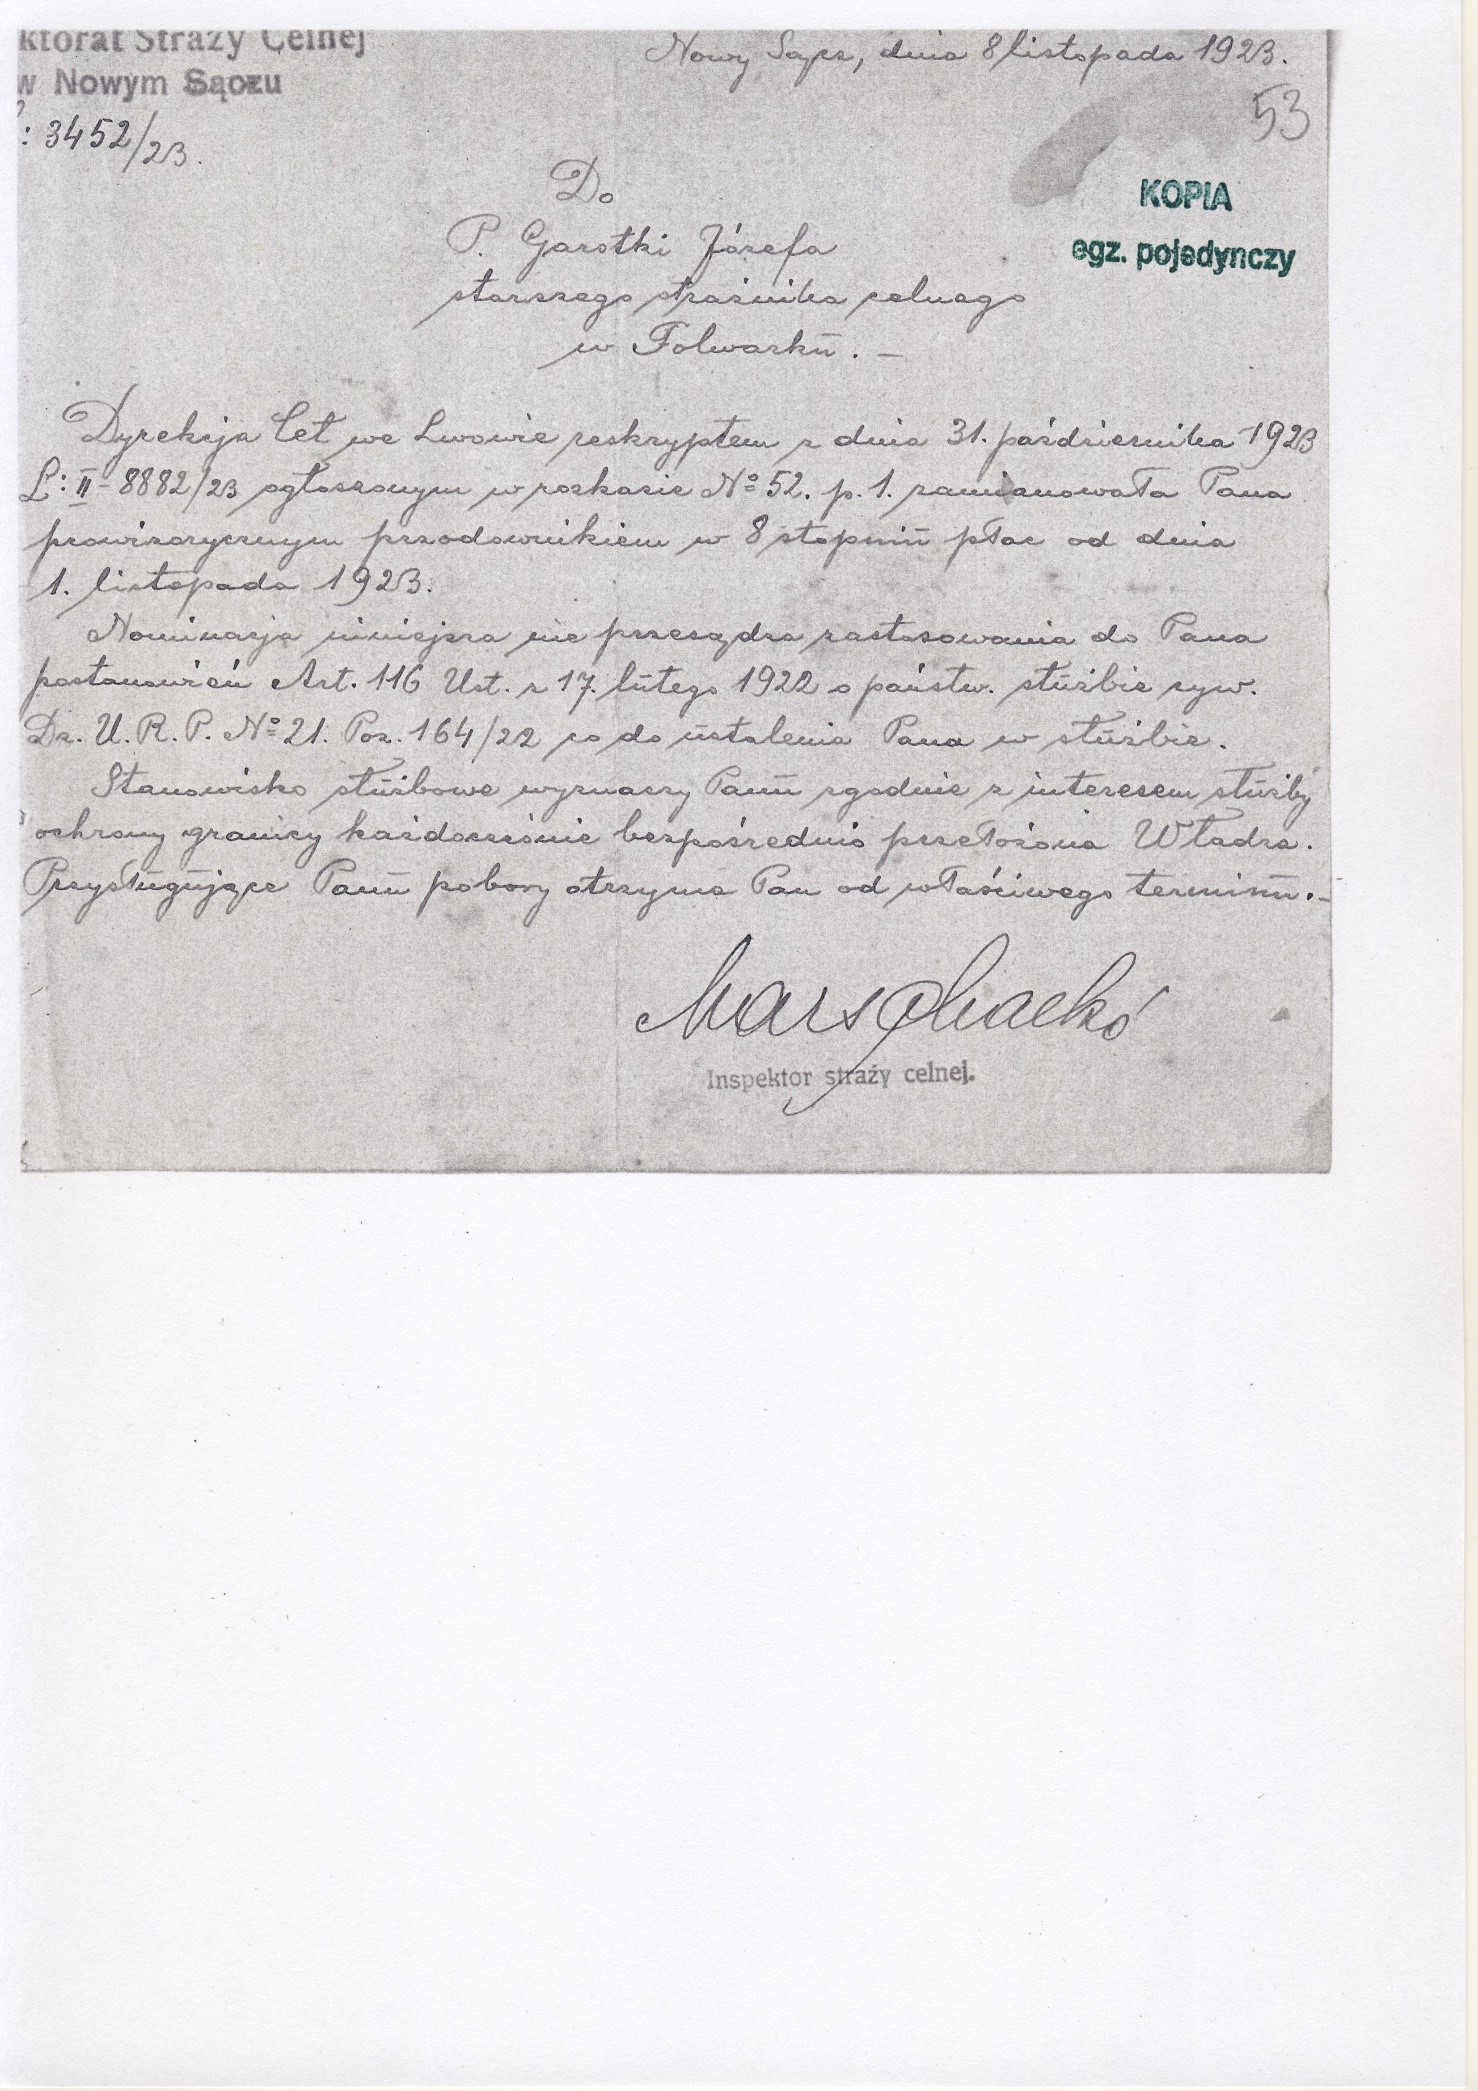 ktorat Straży Celnej
w Nowym Sączu
: 3452/23.
Nowy Sącz, dnia 8 listopada 1923.
53
KOPIA
egz. pojedynczy
Do
P. Garotki Józefa
starszego strażnika celnego
w Folwarku. –
Dyrekcja Ceł we Lwowie reskryptem z dnia 31. października 1923
L: II – 8882/23 ogłoszonym w rozkazie No 52. p. 1. zamianowała Pana
prowizorycznym przodownikiem w 8 stopniu płac od dnia
1. listopada 1923.
Nominacja niniejsza nie przesądza zastosowania do Pana
postanowień Art. 116 Ust. z 17. lutego 1922 o państw. służbie cyw.
Dz. U. R. P. No 21. Poz. 164/22 co do ustalenia Pana w służbie.
Stanowisko służbowe wyznaczy Panu zgodnie z interesem służby
ochrony granicy każdocześnie bezpośrednio przełożona Władza.
Przysługujące Panu pobory otrzyma Pan od właściwego terminu. –
Inspektor straży celnej.